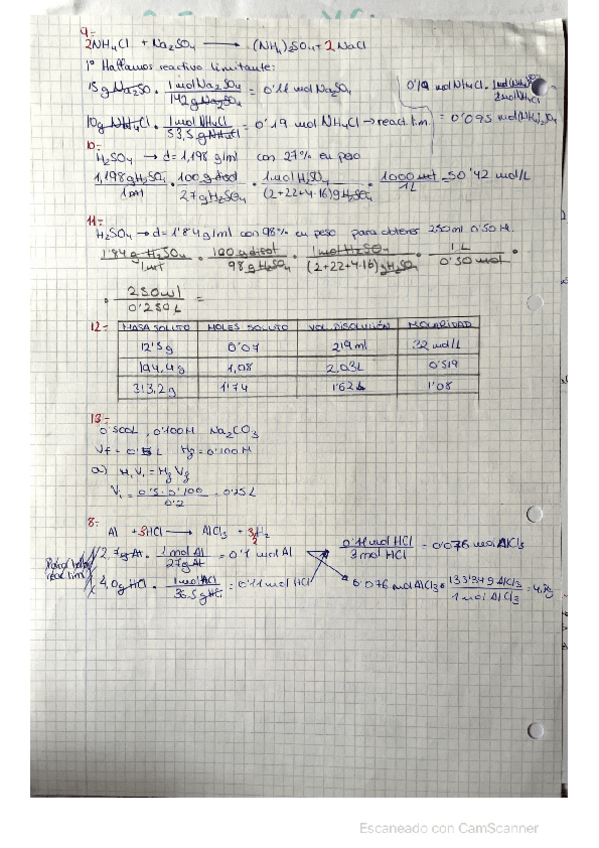 9=
2NH4Cl + Na2SO4 → (NH4)2SO4 + 2NaCl
1º Hallamos reactivo limitante:
15 g Na2SO · 1 mol Na2SO4 / 142 g Na2SO4 = 0'11 mol Na2SO4
0'19 mol NH4Cl · 1 mol (NH4)2SO4 / 2 mol NH4Cl
10 g NH4Cl · 1 mol NH4Cl / 53,5 g NH4Cl = 0'19 mol NH4Cl → react. lim.
= 0'095 mol (NH4)2SO4
10=
H2SO4 → d = 1,198 g/ml con 27% en peso
1,198 g H2SO4 / 1 ml · 100 g disol / 27 g H2SO4 · 1 mol H2SO4 / (2+22+4·16) g H2SO4 · 1000 ml / 1L = 50'42 mol/L
11=
H2SO4 → d = 1'84 g/ml con 98% en peso para obtener 250 ml 0'50 M.
1'84 g H2SO4 / 1 ml · 100 g disol / 98 g H2SO4 · 1 mol H2SO4 / (2+22+4·16) g H2SO4 · 1 L / 0'50 mol ·
· 250 ml / 0'250 L =
12= MASA SOLUTO MOLES SOLUTO VOL. DISOLUCIÓN MOLARIDAD
12'5 g 0'07 219 ml 32 mol/L
194,4 g 1,08 2,03 L 0'519
313,2 g 1'74 1'62 L 1'08
13=
0'500 L, 0'100 M Na2CO3
Vf = 0'5 L Mf = 0'100 M
a) M1 V1 = Mf Vf
Vi = 0'5 · 0'100 / 0'2 = 0'25 L
8=
Al + 3HCl → AlCl3 + 3/2 H2
2.7 g Al · 1 mol Al / 27 g Al = 0'1 mol Al
0'11 mol HCl / 3 mol HCl = 0'076 mol AlCl3
react lim
4,0 g HCl · 1 mol HCl / 36.5 g HCl = 0'11 mol HCl
0'076 mol AlCl3 · 133'34 g AlCl3 / 1 mol AlCl3 =
Escaneado con CamScanner